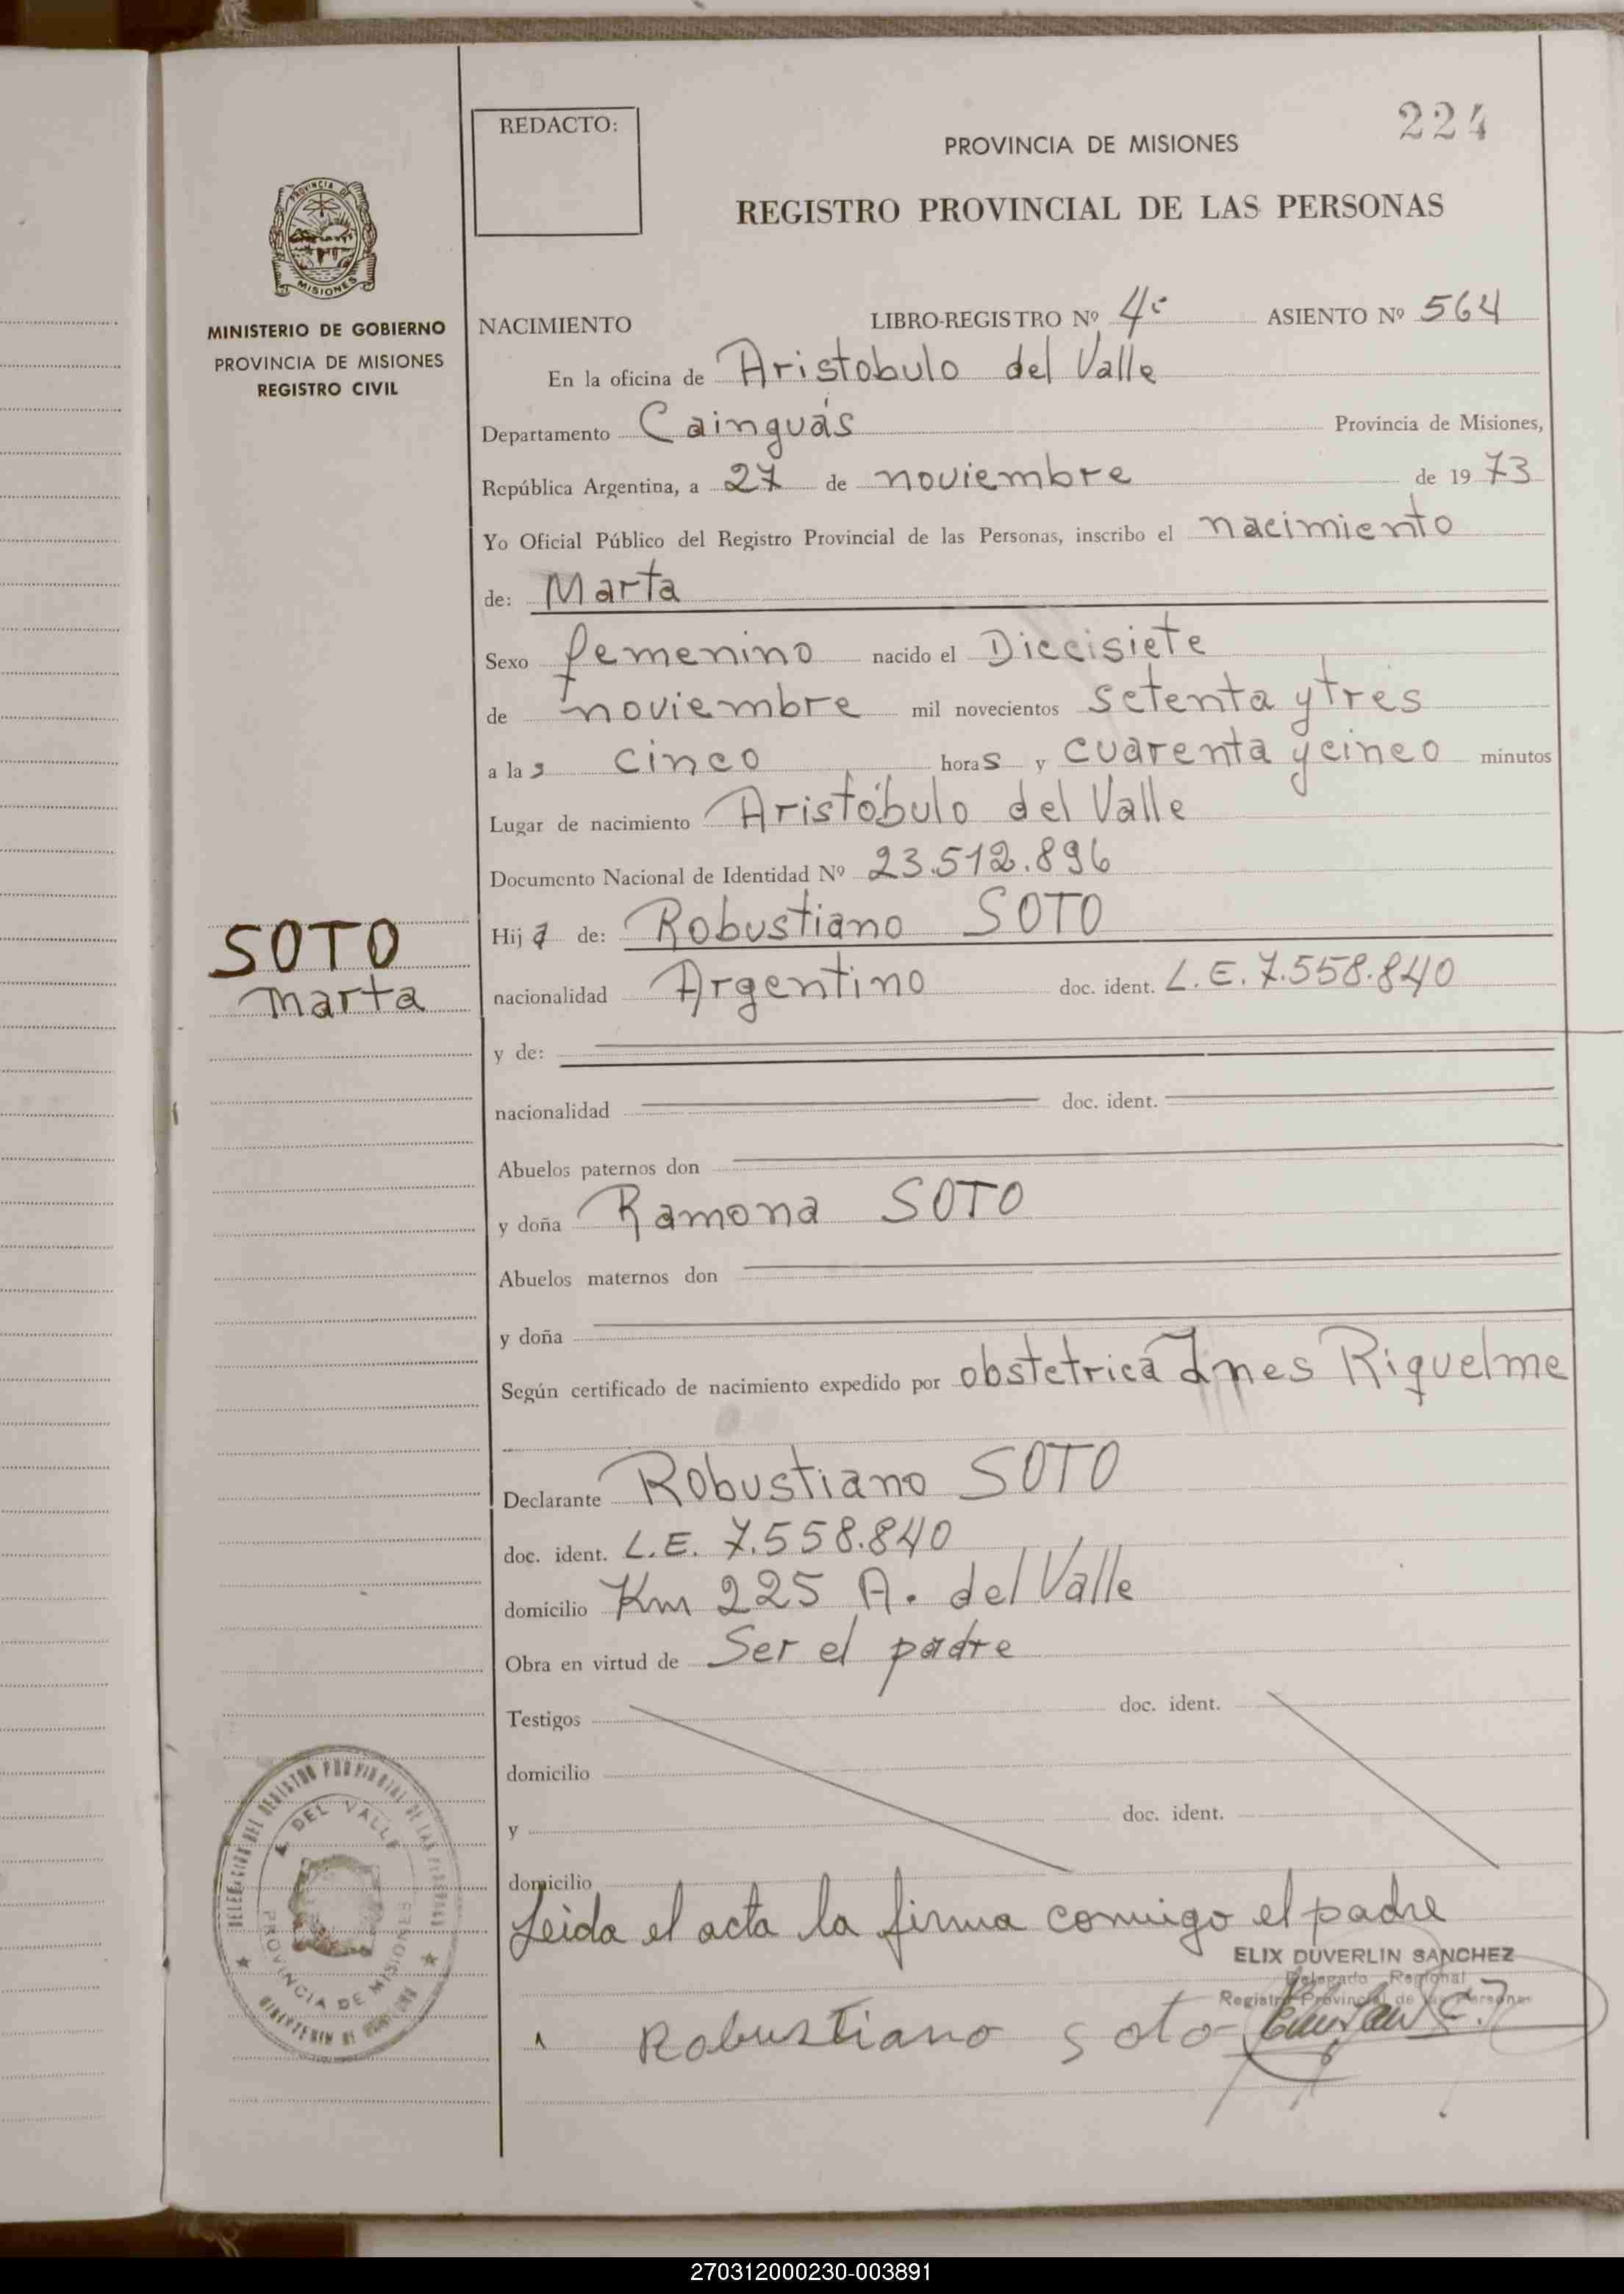 REDACTO:
224
PROVINCIA DE MISIONES
REGISTRO PROVINCIAL DE LAS PERSONAS
PROVINCIA DE
MISIONES
MINISTERIO DE GOBIERNO
PROVINCIA DE MISIONES
REGISTRO CIVIL
NACIMIENTO LIBRO-REGISTRO Nº 4º ASIENTO Nº 564
En la oficina de Aristobulo del Valle
Departamento Cainguás Provincia de Misiones,
República Argentina, a 27 de noviembre de 1973
Yo Oficial Público del Registro Provincial de las Personas, inscribo el nacimiento
de: Marta
Sexo femenino nacido el Diecisiete
de noviembre mil novecientos setenta y tres
a las cinco horas y cuarenta y cinco minutos
Lugar de nacimiento Aristóbulo del Valle
Documento Nacional de Identidad Nº 23.512.896
SOTO
Marta
Hija de: Robustiano SOTO
nacionalidad Argentino doc. ident. L.E. 7.558.840
y de:
nacionalidad doc. ident.
Abuelos paternos don
y doña Ramona SOTO
Abuelos maternos don
y doña
Según certificado de nacimiento expedido por obstetrica Ines Riquelme
Declarante Robustiano SOTO
doc. ident. L.E. 7.558.840
domicilio Km 225 A. del Valle
Obra en virtud de Ser el padre
Testigos doc. ident.
domicilio
y doc. ident.
domicilio
Leida el acta la firma conmigo el padre
ELIX DUVERLIN SANCHEZ
Delegado Regional
Registro Provincial de las Personas
Robustiano Soto
DELEGACION DEL REGISTRO PROVINCIAL DE LAS PERSONAS
A. DEL VALLE
PROVINCIA DE MISIONES
270312000230-003891